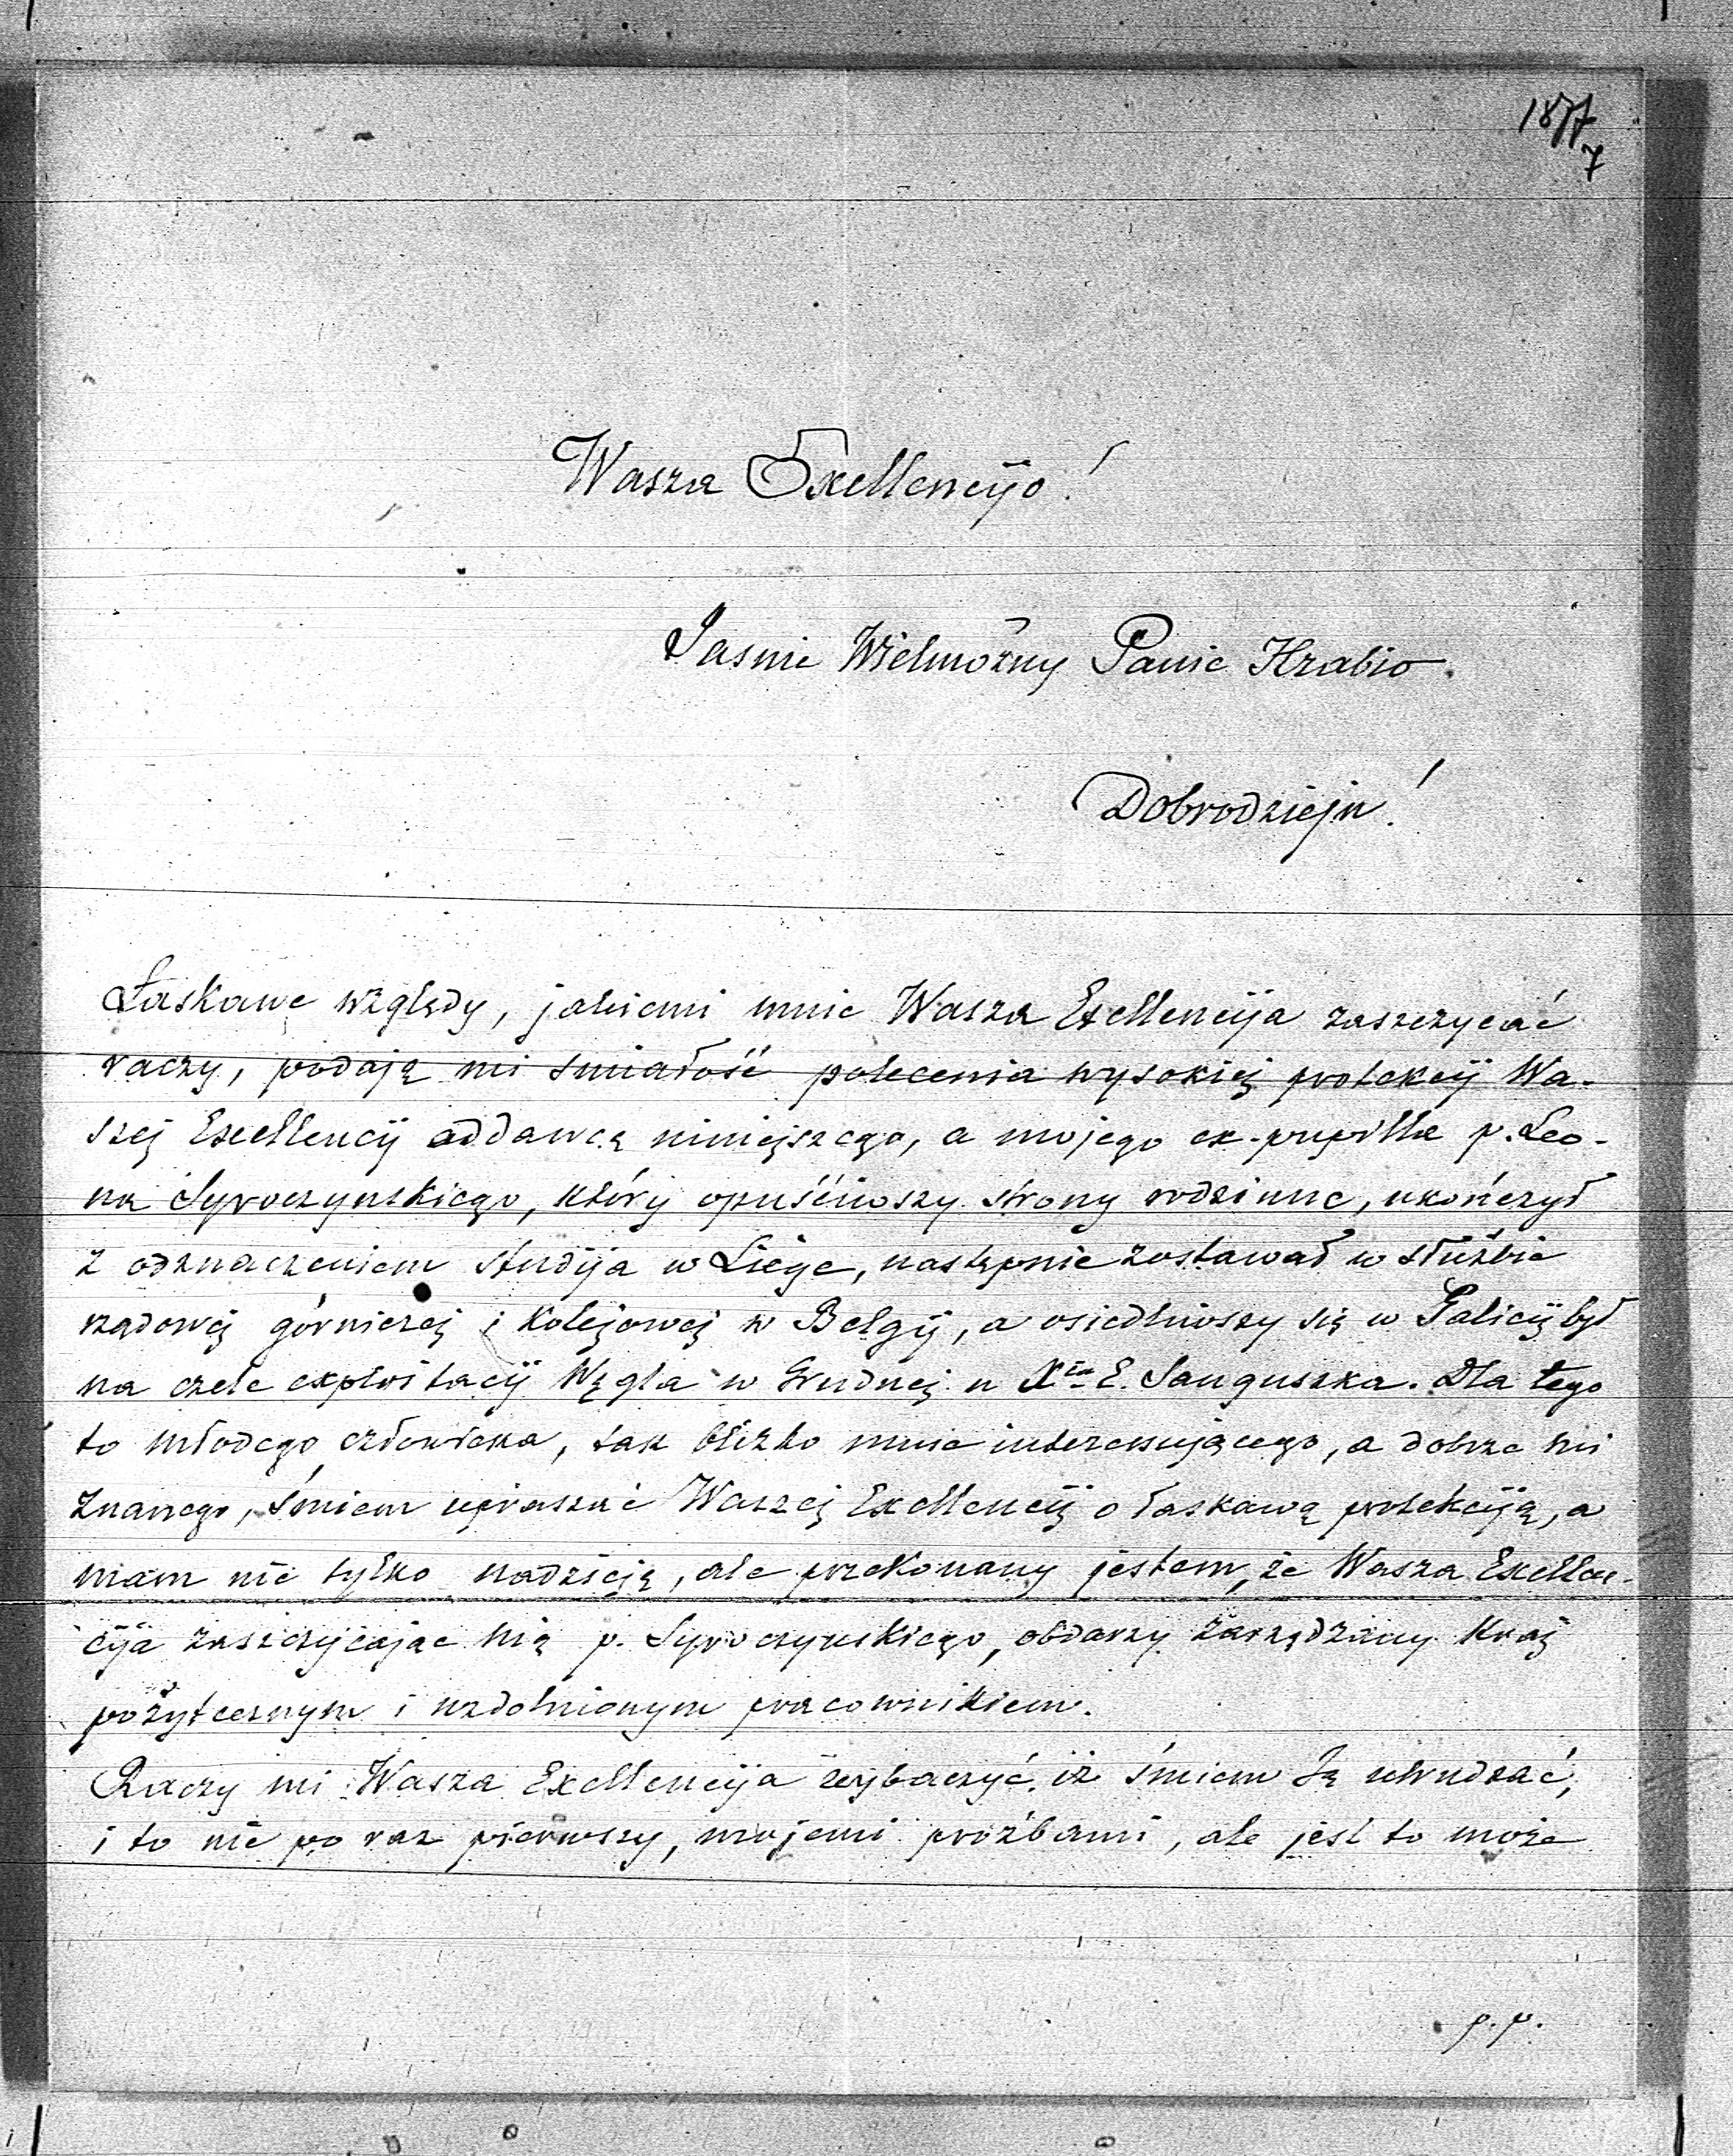 1877
7
Wasza Exellencyjo!
Jasnie Wielmożny Panie Hrabio.
Dobrodzieju!
Łaskawe względy, jakiemi mnie Wasza Exellencija zaszczycać
raczy, podają mi śmiałość polecenia wysokiej protekcij Wa-
szej Exellencij oddawcą niniejszego, a mojego ex-pupilla p. Leo-
na Syroczynskiego, który opuściwszy strony rodzinne, ukończył
z odznaczeniem studija w Liége, następnie zostawał w służbie
rządowej górniczej i kolejowej w Belgij, a osiedliwszy się w Galicij był
na czele exploitacij Węgla w Grudnej u Xcia E. Sanguszka. Dla tego
to młodego człowieka, tak blizko mnie interesującego, a dobrze mi
znanego, śmiem upraszać Waszej Exellencij o łaskawą protekciją, a
mam nie tylko nadzieję, ale przekonany jestem, że Wasza Exellen-
cija zaszczycając nią p. Syroczynskiego, obdarzy zarządzany Kraj
pożytecznym i uzdolnionym pracownikiem.
Raczy mi Wasza Exellencija wybaczyć, iż śmiem Ją utrudzać,
i to nie po raz pierwszy, mojemi prożbami, ale jest to może
p.p.